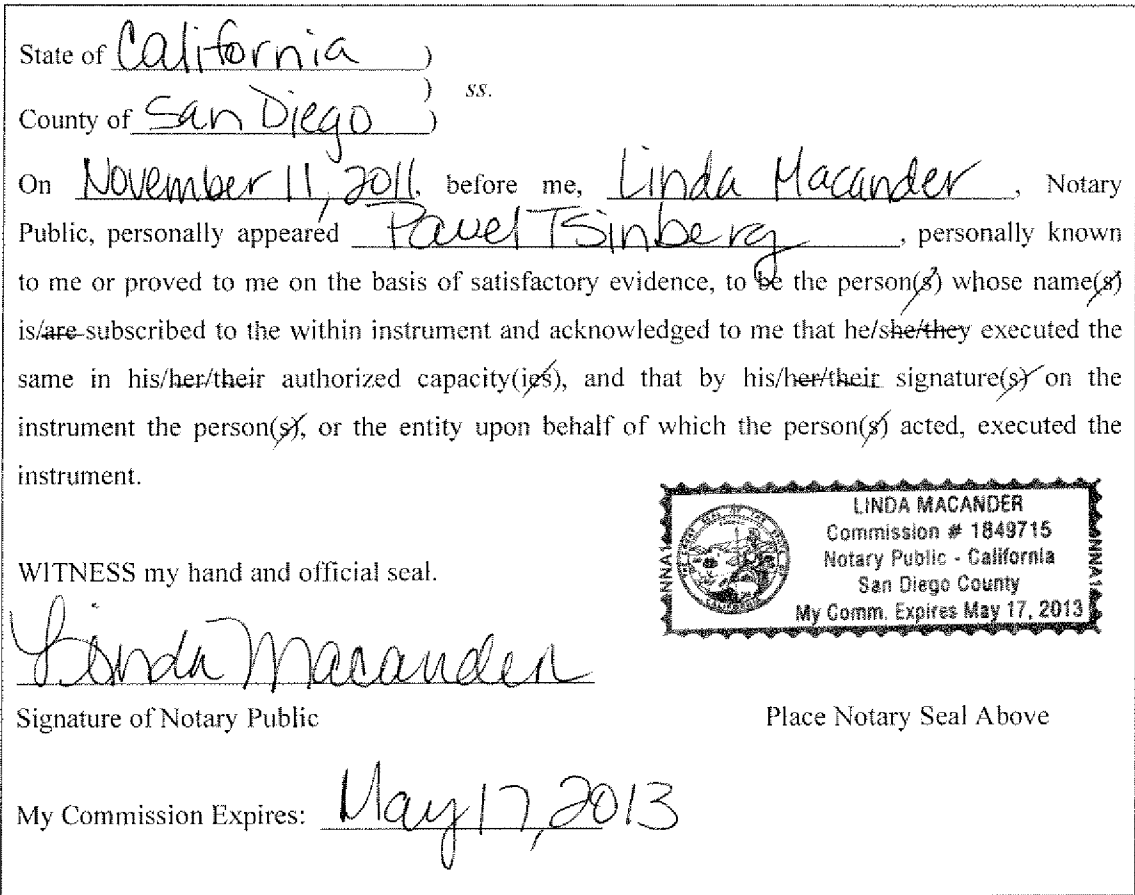 State of California )
) ss.
County of San Diego )
On November 11, 2011, before me, Linda Macander, Notary
Public, personally appeared Pavel Tsinberg, personally known
to me or proved to me on the basis of satisfactory evidence, to be the person(s) whose name(s)
is/are subscribed to the within instrument and acknowledged to me that he/she/they executed the
same in his/her/their authorized capacity(ies), and that by his/her/their signature(s) on the
instrument the person(s), or the entity upon behalf of which the person(s) acted, executed the
instrument.
LINDA MACANDER
Commission # 1849715
Notary Public - California
San Diego County
My Comm. Expires May 17, 2013
NNA1
NNA1
WITNESS my hand and official seal.
Linda Macander
Signature of Notary Public
Place Notary Seal Above
My Commission Expires: May 17, 2013